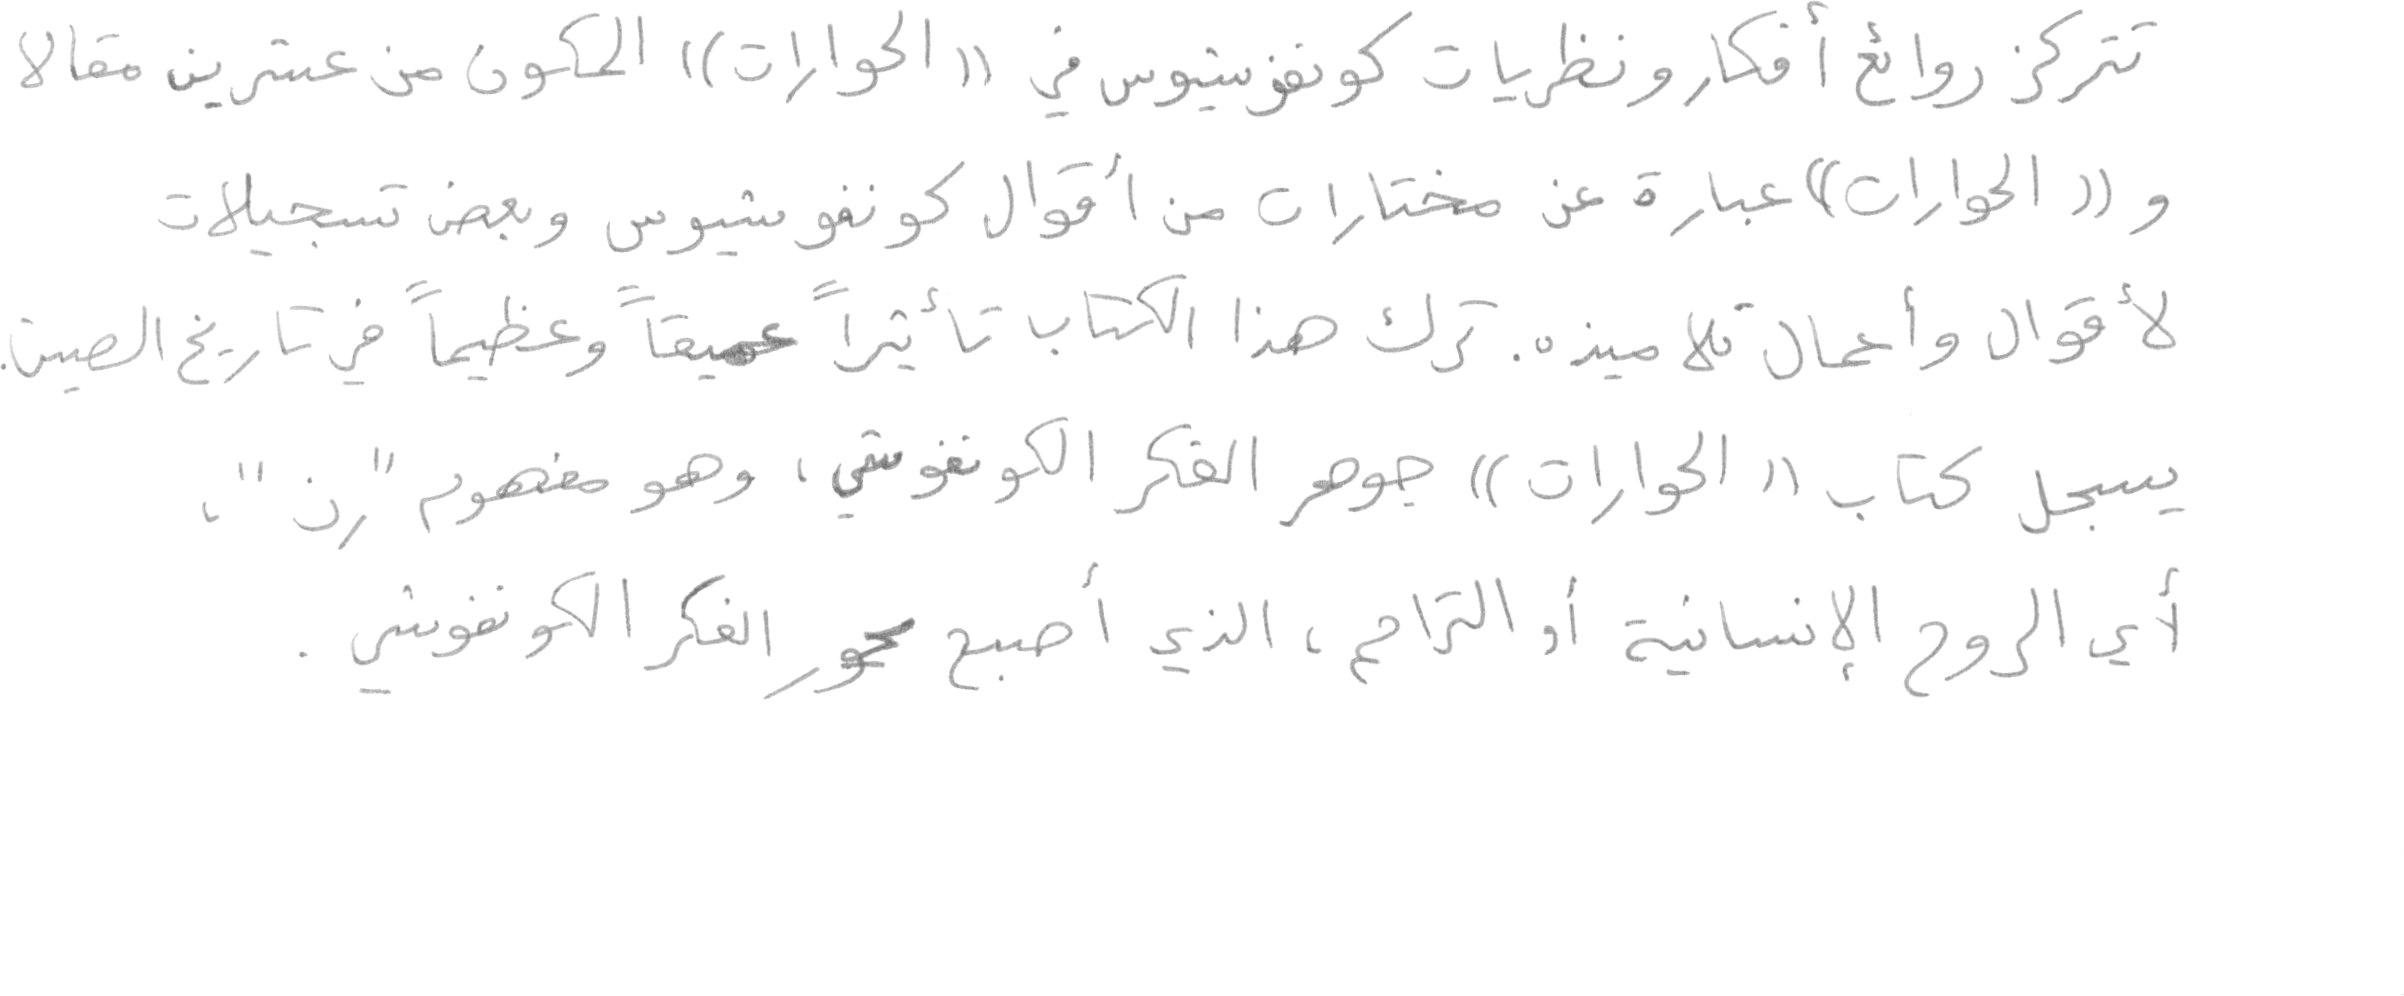 تتركز روائع أفكار ونظريات كونفوشيوس في ((الحوارات)) المكون من عشرين مقالا
و ((الحوارات)) عبارة عن مختارات من أقوال كونفوشيوس وبعض تسجيلات
لأقوال وأعمال تلاميذه. ترك هذا الكتاب تأثيراً عميقاً وعظيماً في تاريخ الصين.
يسجل كتاب ((الحوارات)) جوهر الفكر الكونفوشي، وهو مفهوم "رن"،
أي الروح الإنسانية أو التراحم، الذي أصبح محور الفكر الكونفوشي.